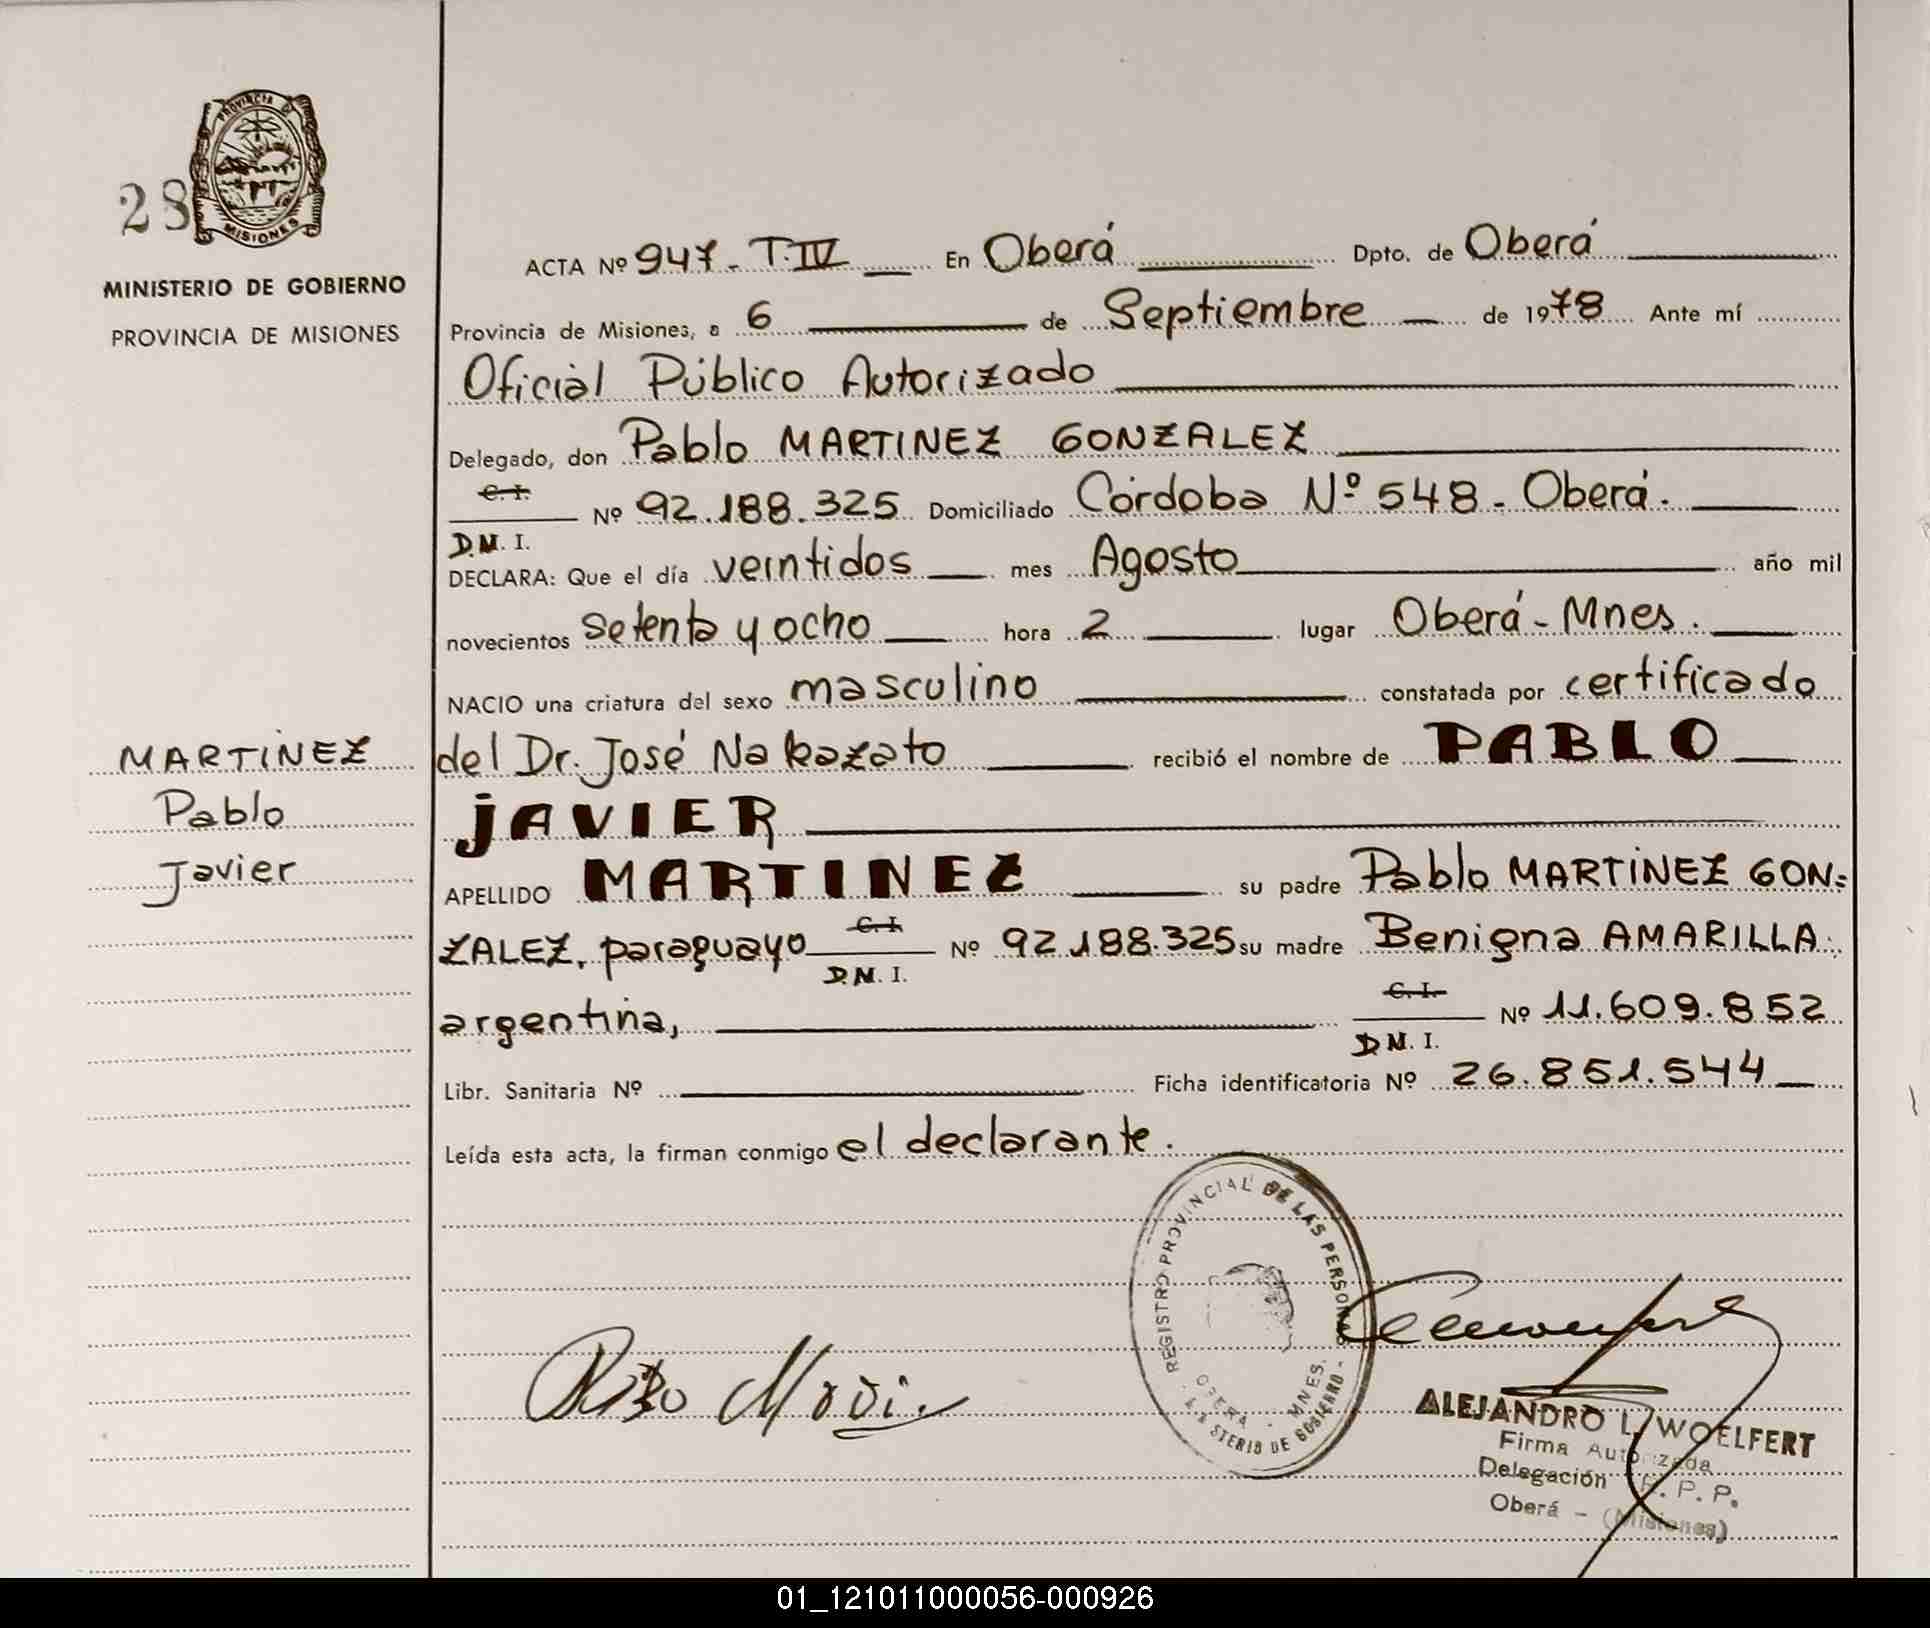 PROVINCIA DE
MISIONES
28
MINISTERIO DE GOBIERNO
PROVINCIA DE MISIONES
MARTINEZ
Pablo
Javier
ACTA Nº 947 - T. IV En Oberá Dpto. de Oberá
Provincia de Misiones, a 6 de Septiembre de 1978 Ante mí
Oficial Público Autorizado
Delegado, don Pablo MARTINEZ GONZALEZ
C. I.
Nº 92.188.325 Domiciliado Córdoba Nº 548 - Oberá.
D.N. I.
DECLARA: Que el día veintidos mes Agosto año mil
novecientos setenta y ocho hora 2 lugar Oberá - Mnes.
NACIO una criatura del sexo masculino constatada por certificado
del Dr. José Nakazato recibió el nombre de PABLO
JAVIER
APELLIDO MARTINEZ su padre Pablo MARTINEZ GON=
C. I.
ZALEZ, paraguayo Nº 92.188.325 su madre Benigna AMARILLA.
D.N. I.
C. I.
argentina, Nº 11.609.852
D.N. I.
Libr. Sanitaria Nº Ficha identificatoria Nº 26.851.544
Leída esta acta, la firman conmigo el declarante.
REGISTRO PROVINCIAL DE LAS PERSONAS
OBERA - MNES.
DE GOBIERNO
ALEJANDRO L. WOELFERT
Firma Autorizada
Delegación R. P. P.
Oberá - (Misiones)
01_121011000056-000926